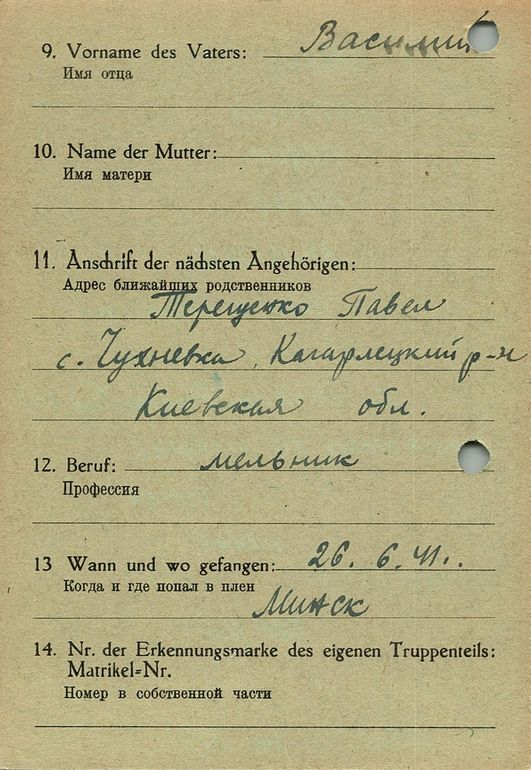 9. Vorname des Vaters: Василий
Имя отца
10. Name der Mutter:
Имя матери
11. Anschrift der nächsten Angehörigen:
Адрес ближайших родственников
Терещенко Павел
с. Чухневка, Кагарлецкий р-н
Киевская обл.
12. Beruf: мельник
Профессия
13 Wann und wo gefangen: 26. 6. 41.
Когда и где попал в плен
Минск
14. Nr. der Erkennungsmarke des eigenen Truppenteils:
Matrikel-Nr.
Номер в собственной части